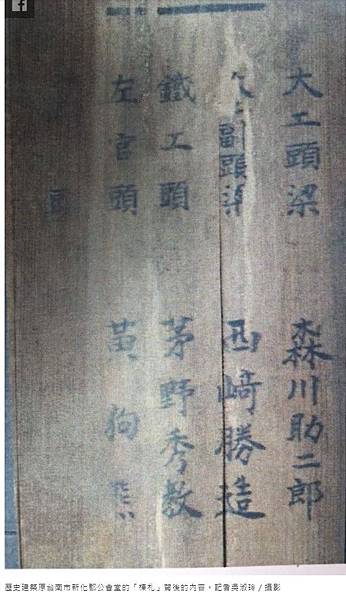 大工頭梁 森川助二郎
副頭梁 西崎勝造
鐵工頭 茅野秀教
左官頭 黃狗
頭
歷史建築原台南市新化郡公會堂的「棟札」背後的內容。記者吳淑玲／攝影